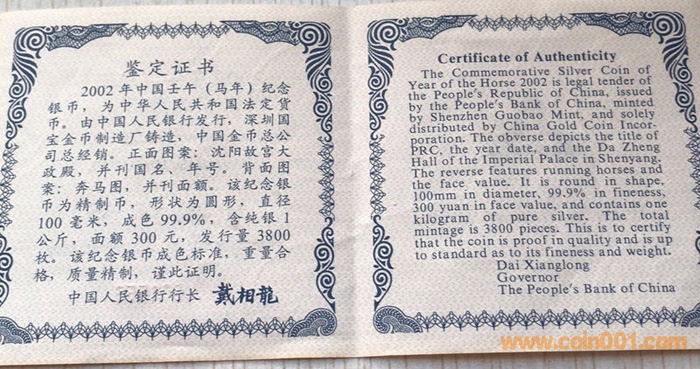 鉴定证书
2002年中国壬午(马年)纪念
银币，为中华人民共和国法定货
币。由中国人民银行发行，深圳国
宝金币制造厂铸造，中国金币总公
司总经销。正面图案：沈阳故宫大
政殿，并刊国名、年号。背面图
案：奔马图，并刊面额。该纪念银
币为精制币，形状为圆形，直径
100毫米，成色99.9%，含纯银1
公斤，面额300元，发行量3800
枚。该纪念银币成色标准，重量合
格，质量精制，谨此证明。
中国人民银行行长 戴相龍
Certificate of Authenticity
The Commemorative Silver Coin of
Year of the Horse 2002 is legal tender of
the People's Republic of China, issued
by the People's Bank of China, minted
by Shenzhen Guobao Mint, and solely
distributed by China Gold Coin Incor-
poration. The obverse depicts the title of
PRC, the year date, and the Da Zheng
Hall of the Imperial Palace in Shenyang.
The reverse features running horses and
the face value. It is round in shape,
100mm in diameter, 99.9% in fineness,
300 yuan in face value, and contains one
kilogram of pure silver. The total
mintage is 3800 pieces. This is to certify
that the coin is proof in quality and is up
to standard as to its fineness and weight.
Dai Xianglong
Governor
The People's Bank of China
www.coin001.com